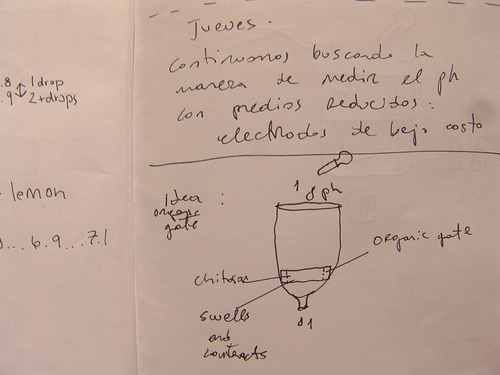 .8 1 drop
.9 2+drops
lemon
... 6.9 ... 7.1
Jueves.
continuamos buscando la
manera de medir el ph
con medios reducidos:
electrodos de bajo costo
Idea :
organic
gate
1 8 ph
organic gate
chitosan
swells
and
contracts